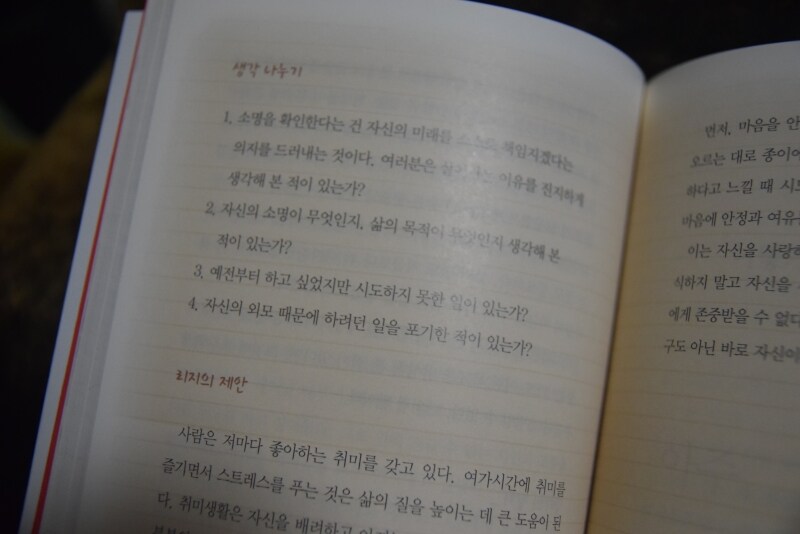 생각 나누기
1. 소명을 확인한다는 건 자신의 미래를 스스로 책임지겠다는
의지를 드러내는 것이다. 여러분은 살아가는 이유를 진지하게
생각해 본 적이 있는가?
2. 자신의 소명이 무엇인지, 삶의 목적이 무엇인지 생각해 본
적이 있는가?
3. 예전부터 하고 싶었지만 시도하지 못한 일이 있는가?
4. 자신의 외모 때문에 하려던 일을 포기한 적이 있는가?
리지의 제안
사람은 저마다 좋아하는 취미를 갖고 있다. 여가시간에 취미를
즐기면서 스트레스를 푸는 것은 삶의 질을 높이는 데 큰 도움이 된
다. 취미생활은 자신을 배려하고
먼저, 마음을 안
오르는 대로 종이에
하다고 느낄 때 시도
마음에 안정과 여유
이는 자신을 사랑하
식하지 말고 자신을
에게 존중받을 수 없다
구도 아닌 바로 자신이